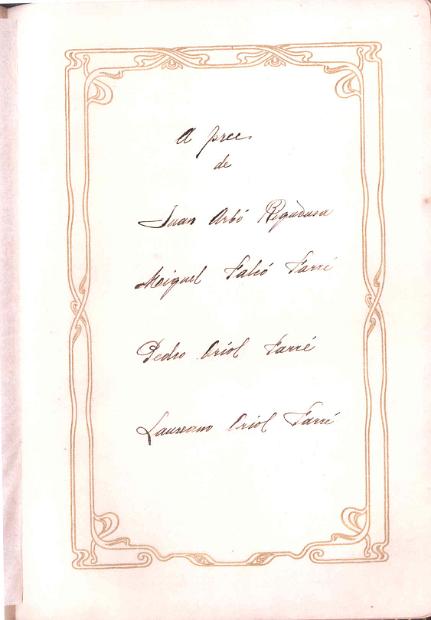 A prec.
de
Juan Arbó
Miguel Falcó Farré
Pedro Oriol Farré
Oriol Farré